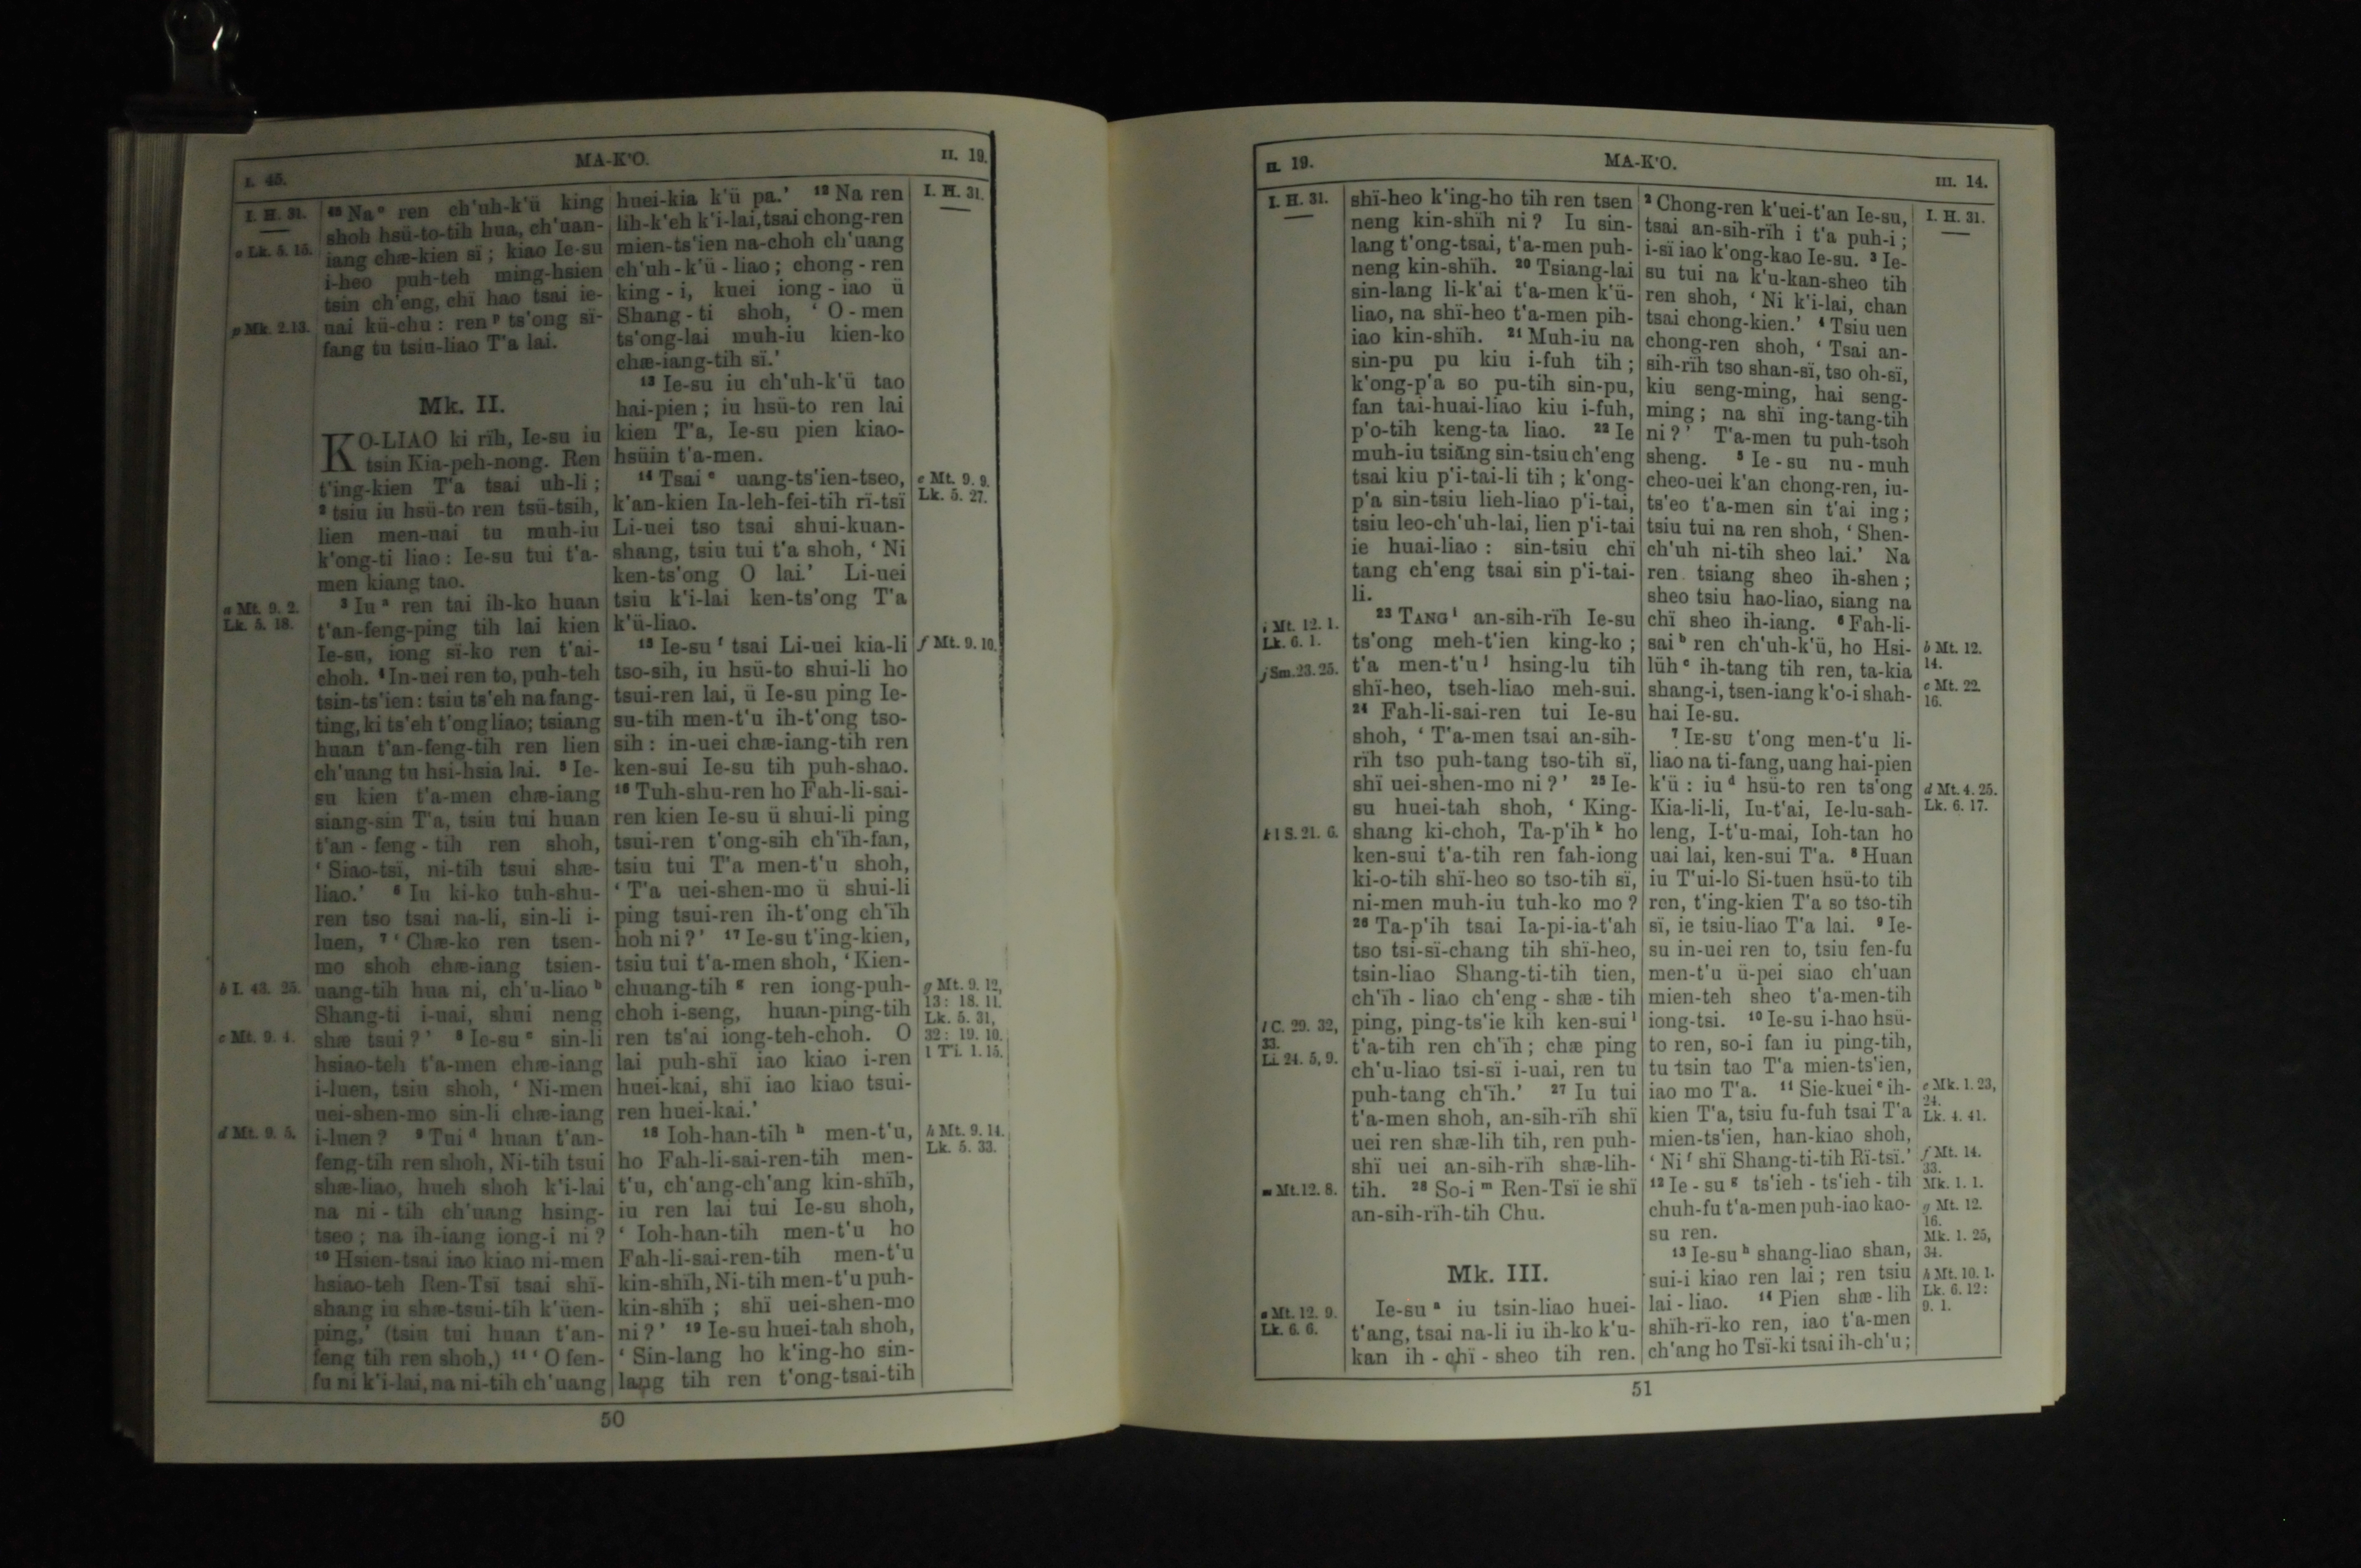 I. 45.
MA-K'O.
II. 19.
I. H. 31.
o Lk. 5. 15.
p Mk. 2.13.
a Mt. 9. 2.
Lk. 5. 18.
b I. 43. 25.
c Mt. 9. 4.
d Mt. 9. 5.
45 Na o ren ch'uh-k'ü king
shoh hsü-to-tih hua, ch'uan-
iang chæ-kien sï; kiao Ie-su
i-heo puh-teh ming-hsien
tsin ch'eng, chï hao tsai ie-
uai kü-chu: ren p ts'ong sï-
fang tu tsiu-liao T'a lai.
Mk. II.
KO-LIAO ki rïh, Ie-su iu
tsin Kia-peh-nong. Ren
t'ing-kien T'a tsai uh-li;
2 tsiu iu hsü-to ren tsü-tsih,
lien men-uai tu muh-iu
k'ong-ti liao: Ie-su tui t'a-
men kiang tao.
3 Iu a ren tai ih-ko huan
t'an-feng-ping tih lai kien
Ie-su, iong sï-ko ren t'ai-
choh. 4 In-uei ren to, puh-teh
tsin-ts'ien: tsiu ts'eh na fang-
ting, ki ts'eh t'ong liao; tsiang
huan t'an-feng-tih ren lien
ch'uang tu hsi-hsia lai. 5 Ie-
su kien t'a-men chæ-iang
siang-sin T'a, tsiu tui huan
t'an-feng-tih ren shoh,
'Siao-tsï, ni-tih tsui shæ-
liao.' 6 Iu ki-ko tuh-shu-
ren tso tsai na-li, sin-li i-
luen, 7 'Chæ-ko ren tsen-
mo shoh chæ-iang tsien-
uang-tih hua ni, ch'u-liao b
Shang-ti i-uai, shui neng
shæ tsui?' 8 Ie-su c sin-li
hsiao-teh t'a-men chæ-iang
i-luen, tsiu shoh, 'Ni-men
uei-shen-mo sin-li chæ-iang
i-luen? 9 Tui d huan t'an-
feng-tih ren shoh, Ni-tih tsui
shæ-liao, hueh shoh k'i-lai
na ni-tih ch'uang hsing-
tseo; na ih-iang iong-i ni?
10 Hsien-tsai iao kiao ni-men
hsiao-teh Ren-Tsï tsai shï-
shang iu shæ-tsui-tih k'üen-
ping,' (tsiu tui huan t'an-
feng tih ren shoh,) 11 'O fen-
fu ni k'i-lai, na ni-tih ch'uang
huei-kia k'ü pa.' 12 Na ren
lih-k'eh k'i-lai, tsai chong-ren
mien-ts'ien na-choh ch'uang
ch'uh-k'ü-liao; chong-ren
king-i, kuei iong-iao ü
Shang-ti shoh, 'O-men
ts'ong-lai muh-iu kien-ko
chæ-iang-tih sï.'
13 Ie-su iu ch'uh-k'ü tao
hai-pien; iu hsü-to ren lai
kien T'a, Ie-su pien kiao-
hsüin t'a-men.
14 Tsai e uang-ts'ien-tseo,
k'an-kien Ia-leh-fei-tih rï-tsï
Li-uei tso tsai shui-kuan-
shang, tsiu tui t'a shoh, 'Ni
ken-ts'ong O lai.' Li-uei
tsiu k'i-lai ken-ts'ong T'a
k'ü-liao.
15 Ie-su f tsai Li-uei kia-li
tso-sih, iu hsü-to shui-li ho
tsui-ren lai, ü Ie-su ping Ie-
su-tih men-t'u ih-t'ong tso-
sih: in-uei chæ-iang-tih ren
ken-sui Ie-su tih puh-shao.
16 Tuh-shu-ren ho Fah-li-sai-
ren kien Ie-su ü shui-li ping
tsui-ren t'ong-sih ch'ïh-fan,
tsiu tui T'a men-t'u shoh,
'T'a uei-shen-mo ü shui-li
ping tsui-ren ih-t'ong ch'ïh
hoh ni?' 17 Ie-su t'ing-kien,
tsiu tui t'a-men shoh, 'Kien-
chuang-tih g ren iong-puh-
choh i-seng, huan-ping-tih
ren ts'ai iong-teh-choh. O
lai puh-shï iao kiao i-ren
huei-kai, shï iao kiao tsui-
ren huei-kai.'
18 Ioh-han-tih h men-t'u,
ho Fah-li-sai-ren-tih men-
t'u, ch'ang-ch'ang kin-shïh,
iu ren lai tui Ie-su shoh,
'Ioh-han-tih men-t'u ho
Fah-li-sai-ren-tih men-t'u
kin-shïh, Ni-tih men-t'u puh-
kin-shïh; shï uei-shen-mo
ni?' 19 Ie-su huei-tah shoh,
'Sin-lang ho k'ing-ho sin-
lang tih ren t'ong-tsai-tih
I. H. 31.
e Mt. 9. 9.
Lk. 5. 27.
f Mt. 9. 10.
g Mt. 9. 12,
13: 18. 11.
Lk. 5. 31,
32: 19. 10.
1 T'i. 1. 15.
h Mt. 9. 14.
Lk. 5. 33.
50
II. 19.
MA-K'O.
III. 14.
I. H. 31.
i Mt. 12. 1.
Lk. 6. 1.
j Sm. 23. 25.
k 1 S. 21. 6.
l C. 29. 32,
33.
Li. 24. 5, 9.
m Mt. 12. 8.
a Mt. 12. 9.
Lk. 6. 6.
shï-heo k'ing-ho tih ren tsen
neng kin-shïh ni? Iu sin-
lang t'ong-tsai, t'a-men puh-
neng kin-shïh. 20 Tsiang-lai
sin-lang li-k'ai t'a-men k'ü-
liao, na shï-heo t'a-men pih-
iao kin-shïh. 21 Muh-iu na
sin-pu pu kiu i-fuh tih;
k'ong-p'a so pu-tih sin-pu,
fan tai-huai-liao kiu i-fuh,
p'o-tih keng-ta liao. 22 Ie
muh-iu tsiāng sin-tsiu ch'eng
tsai kiu p'i-tai-li tih; k'ong-
p'a sin-tsiu lieh-liao p'i-tai,
tsiu leo-ch'uh-lai, lien p'i-tai
ie huai-liao: sin-tsiu chï
tang ch'eng tsai sin p'i-tai-
li.
23 TANG i an-sih-rïh Ie-su
ts'ong meh-t'ien king-ko;
t'a men-t'u j hsing-lu tih
shï-heo, tseh-liao meh-sui.
24 Fah-li-sai-ren tui Ie-su
shoh, 'T'a-men tsai an-sih-
rïh tso puh-tang tso-tih sï,
shï uei-shen-mo ni?' 25 Ie-
su huei-tah shoh, 'King-
shang ki-choh, Ta-p'ih k ho
ken-sui t'a-tih ren fah-iong
ki-o-tih shï-heo so tso-tih sï,
ni-men muh-iu tuh-ko mo?
26 Ta-p'ih tsai Ia-pi-ia-t'ah
tso tsi-sï-chang tih shï-heo,
tsin-liao Shang-ti-tih tien,
ch'ïh-liao ch'eng-shæ-tih
ping, ping-ts'ie kih ken-sui l
t'a-tih ren ch'ïh; chæ ping
ch'u-liao tsi-sï i-uai, ren tu
puh-tang ch'ïh.' 27 Iu tui
t'a-men shoh, an-sih-rïh shï
uei ren shæ-lih tih, ren puh-
shï uei an-sih-rïh shæ-lih-
tih. 28 So-i m Ren-Tsï ie shï
an-sih-rïh-tih Chu.
Mk. III.
Ie-su a iu tsin-liao huei-
t'ang, tsai na-li iu ih-ko k'u-
kan ih-chï-sheo tih ren.
2 Chong-ren k'uei-t'an Ie-su,
tsai an-sih-rïh i t'a puh-i;
i-sï iao k'ong-kao Ie-su. 3 Ie-
su tui na k'u-kan-sheo tih
ren shoh, 'Ni k'i-lai, chan
tsai chong-kien.' 4 Tsiu uen
chong-ren shoh, 'Tsai an-
sih-rïh tso shan-sï, tso oh-sï,
kiu seng-ming, hai seng-
ming; na shï ing-tang-tih
ni?' T'a-men tu puh-tsoh
sheng. 5 Ie-su nu-muh
cheo-uei k'an chong-ren, iu-
ts'eo t'a-men sin t'ai ing;
tsiu tui na ren shoh, 'Shen-
ch'uh ni-tih sheo lai.' Na
ren tsiang sheo ih-shen;
sheo tsiu hao-liao, siang na
chï sheo ih-iang. 6 Fah-li-
sai b ren ch'uh-k'ü, ho Hsi-
lüh c ih-tang tih ren, ta-kia
shang-i, tsen-iang k'o-i shah-
hai Ie-su.
7 IE-SU t'ong men-t'u li-
liao na ti-fang, uang hai-pien
k'ü: iu d hsü-to ren ts'ong
Kia-li-li, Iu-t'ai, Ie-lu-sah-
leng, I-t'u-mai, Ioh-tan ho
uai lai, ken-sui T'a. 8 Huan
iu T'ui-lo Si-tuen hsü-to tih
ren, t'ing-kien T'a so tso-tih
sï, ie tsiu-liao T'a lai. 9 Ie-
su in-uei ren to, tsiu fen-fu
men-t'u ü-pei siao ch'uan
mien-teh sheo t'a-men-tih
iong-tsi. 10 Ie-su i-hao hsü-
to ren, so-i fan iu ping-tih,
tu tsin tao T'a mien-ts'ien,
iao mo T'a. 11 Sie-kuei e ih-
kien T'a, tsiu fu-fuh tsai T'a
mien-ts'ien, han-kiao shoh,
'Ni f shï Shang-ti-tih Rï-tsï.'
12 Ie-su g ts'ieh-ts'ieh-tih
chuh-fu t'a-men puh-iao kao-
su ren.
13 Ie-su h shang-liao shan,
sui-i kiao ren lai; ren tsiu
lai-liao. 14 Pien shæ-lih
shïh-rï-ko ren, iao t'a-men
ch'ang ho Tsï-ki tsai ih-ch'u;
I. H. 31.
b Mt. 12.
14.
c Mt. 22.
16.
d Mt. 4. 25.
Lk. 6. 17.
e Mk. 1. 23,
24.
Lk. 4. 41.
f Mt. 14.
33.
Mk. 1. 1.
g Mt. 12.
16.
Mk. 1. 25,
34.
h Mt. 10. 1.
Lk. 6. 12:
9. 1.
51